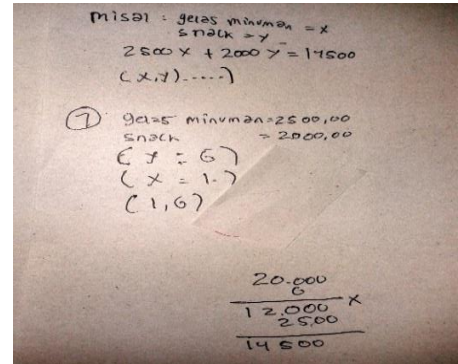 misal : gelas minuman = x
snack = y
2500 x + 2000 y = 14500
(x,y).....)
7 gelas minuman = 2500,00
snack = 2000,00
( y = 6 )
( x = 1 )
( 1, 6 )
20.000
6
12.000 x
2500
14500